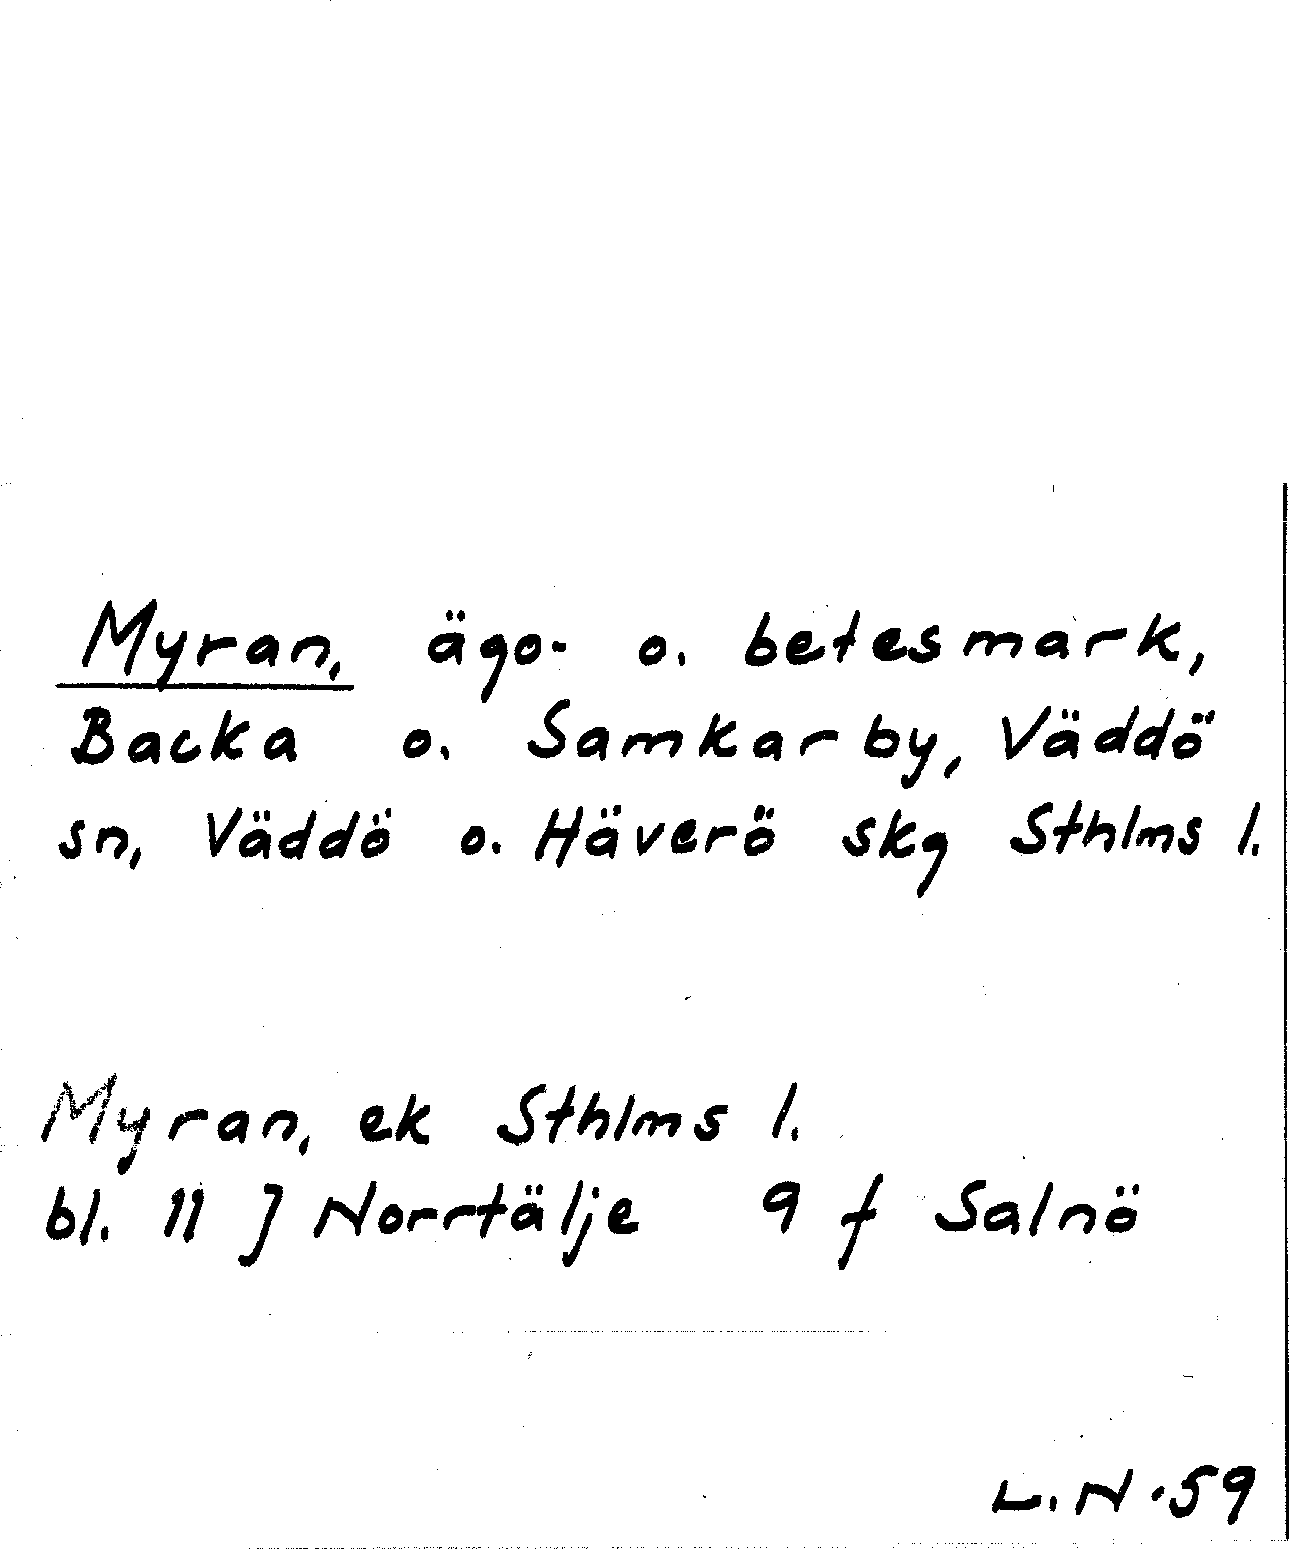 Myran, ägo- o. betesmark,
Backa o. Samkarby, Väddö
sn, Väddö o. Häverö skg Sthlms l.
Myran, ek Sthlms l.
bl. 11 J Norrtälje 9 f Salnö
L.N -59